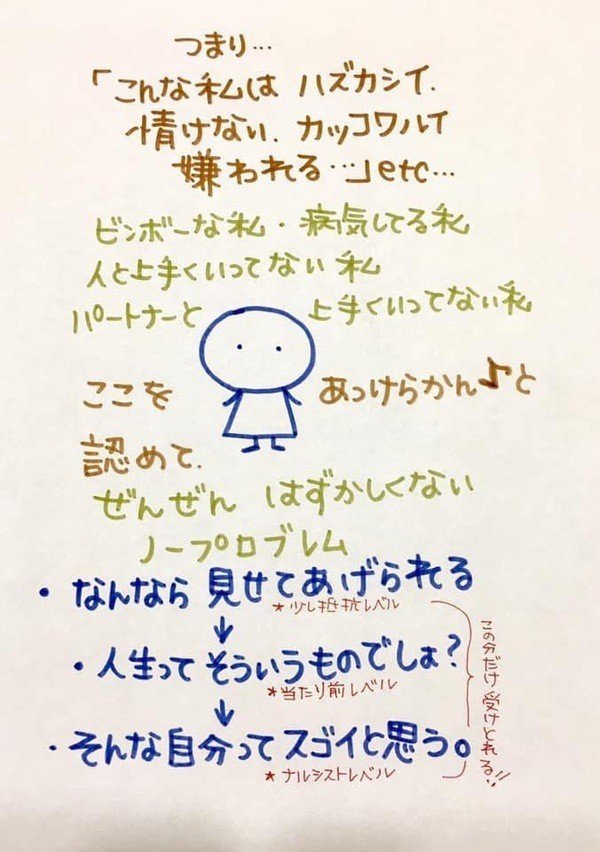 つまり…
「こんな私は ハズカシイ.
情けない. カッコワルイ
嫌われる…」etc…
ビンボーな私・病気してる私
人と上手くいってない私
パートナーと 上手くいってない私
ここを あっけらかん♪と
認めて.
ぜんぜん はずかしくない
ノープロブレム
・なんなら 見せてあげられる
*少し抵抗レベル
↓
・人生って そういうものでしょ?
*当たり前レベル
↓
・そんな自分って スゴイと思う。
*ナルシストレベル
この分だけ 受けとれる!!